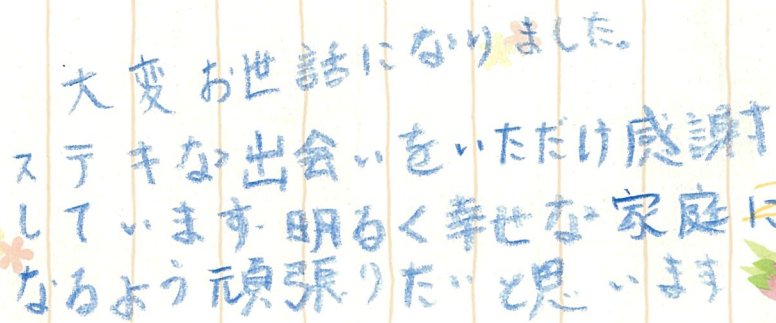 大変お世話になりました。
ステキな出会いをいただけ感謝
しています。明るく幸せな家庭に
なるよう頑張りたいと思います